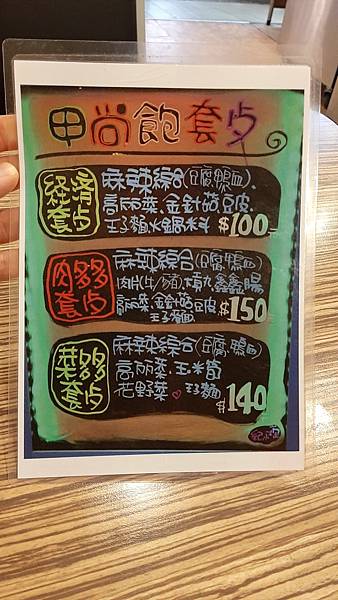 甲尚飽套歺
経濟套歺
麻辣綜合(豆腐.鴨血)、
高丽菜、金針菇、豆皮、
王子麵、火鍋料 $100
肉多多套歺
麻辣綜合(豆腐.鴨血)
肉片(牛/豬)、鑫鑫腸
高丽菜、金針菇、豆皮
王子麵 $150
菜多多套歺
麻辣綜合(豆腐.鴨血)
高丽菜.玉米筍
花野菜 王子麵 $140